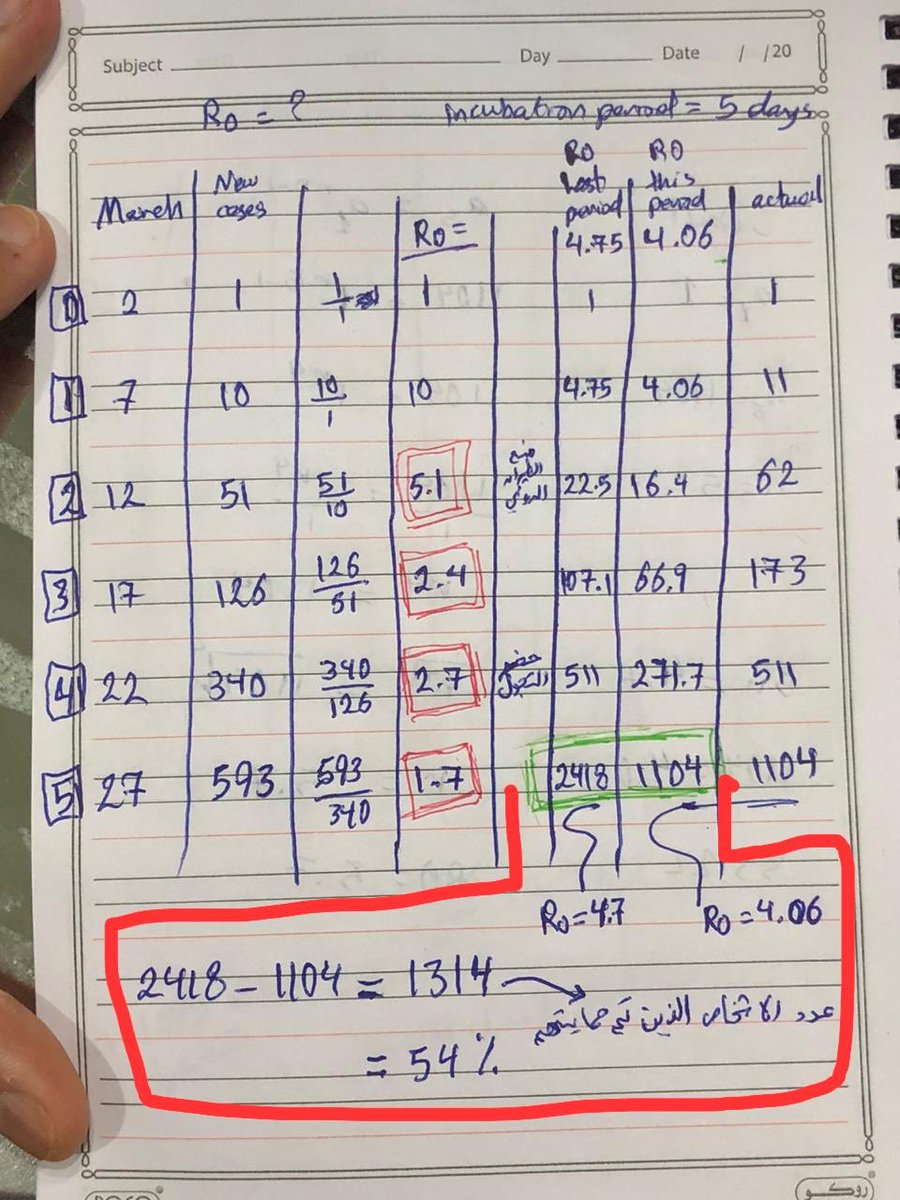 Subject Day Date / /20
R0 = ? incubation period = 5 days
March New cases R0 = R0 last period 4.75 R0 this period 4.06 actual
0 2 1 1/1 1 1 1
1 7 10 10/1 10 4.75 4.06 11
2 12 51 51/10 5.1 22.5 16.4 62
3 17 126 126/51 2.4 107.1 66.9 173
4 22 340 340/126 2.7 حضر التجول 511 271.7 511
5 27 593 593/340 1.7 2418 1104 1104
R0 = 4.7 R0 = 4.06
2418 - 1104 = 1314
عدد الاشخاص الذين تم حمايتهم
= 54 %
ROCO® روكو®